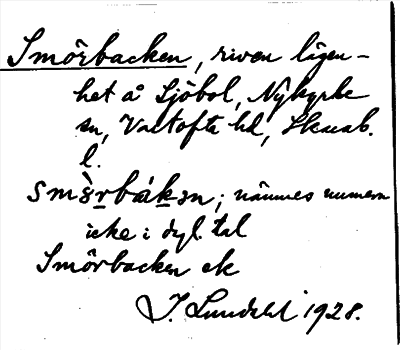 Smörbacken, riven lägen-
het å Sjöbol, Nykyrke
sn, Vartofta hd, Skarab.
l.
smø̀rbákən; nämnes numera
icke i dyl. tal
Smörbacken ek
J. Lundahl 1928.